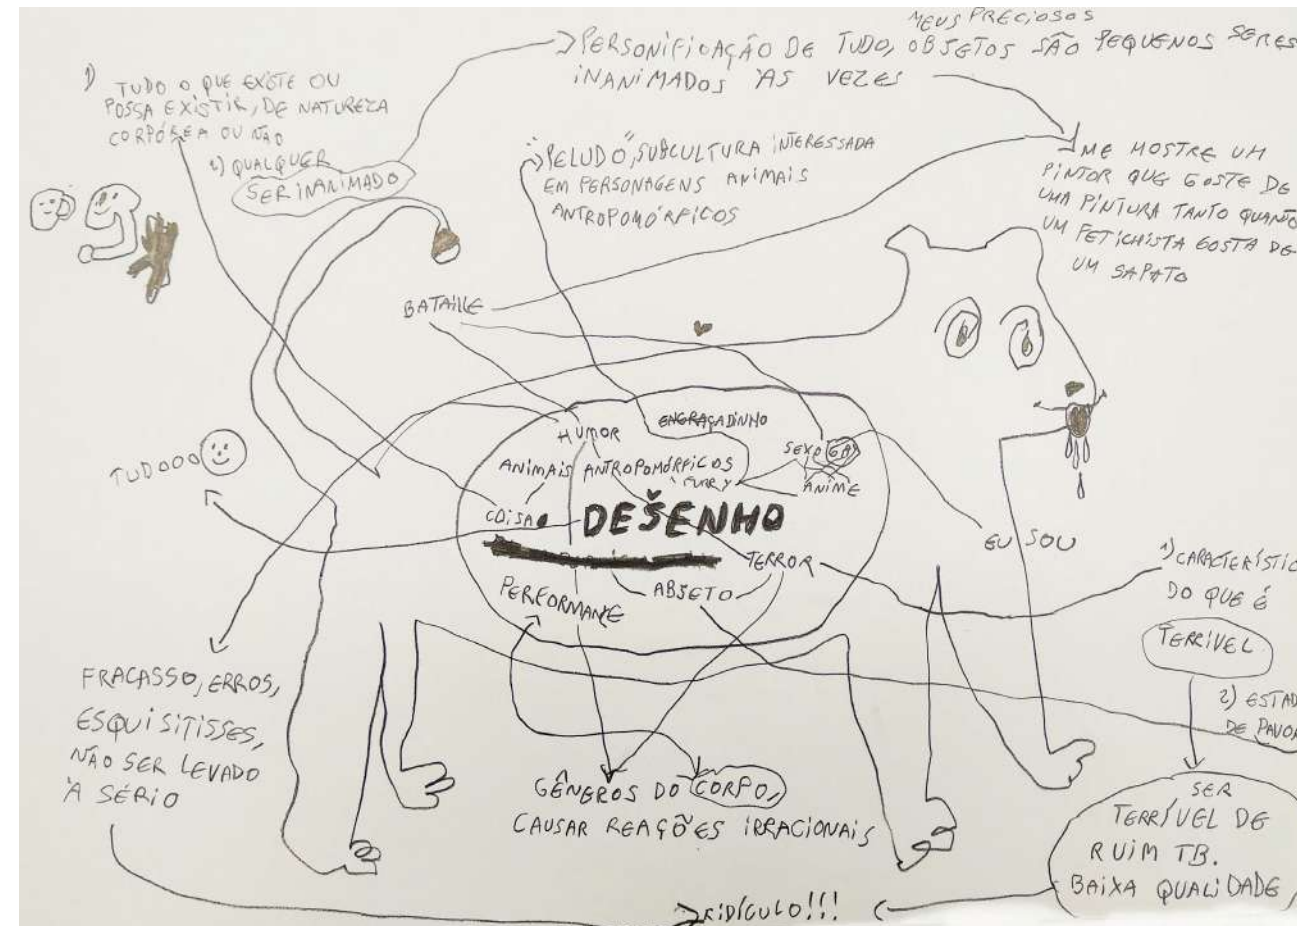 MEUS PRECIOSOS
PERSONIFICAÇÃO DE TUDO, OBJETOS SÃO PEQUENOS SERES
INANIMADOS ÀS VEZES
1) TUDO O QUE EXISTE OU
POSSA EXISTIR, DE NATUREZA
CORPÓREA OU NÃO
2) QUALQUER
SER INANIMADO
"PELUDO", SUBCULTURA INTERESSADA
EM PERSONAGENS ANIMAIS
ANTROPOMÓRFICOS
ME MOSTRE UM
PINTOR QUE GOSTE DE
UMA PINTURA TANTO QUANTO
UM FETICHISTA GOSTA DE
UM SAPATO
BATAILLE
ENGRAÇADINHO
HUMOR
SEXO
ANIMAIS ANTROPOMÓRFICOS
FURRY
ANIME
TUDOOO
COISA
DESENHO
EU SOU
TERROR
ABJETO
PERFORMANCE
1) CARACTERÍSTIC
DO QUE É
TERRÍVEL
2) ESTAD
DE PAVOR
FRACASSO, ERROS,
ESQUISITISSES,
NÃO SER LEVADO
À SÉRIO
GÊNEROS DO CORPO,
CAUSAR REAÇÕES IRRACIONAIS
SER
TERRÍVEL DE
RUIM TB.
BAIXA QUALIDADE
RIDÍCULO!!!